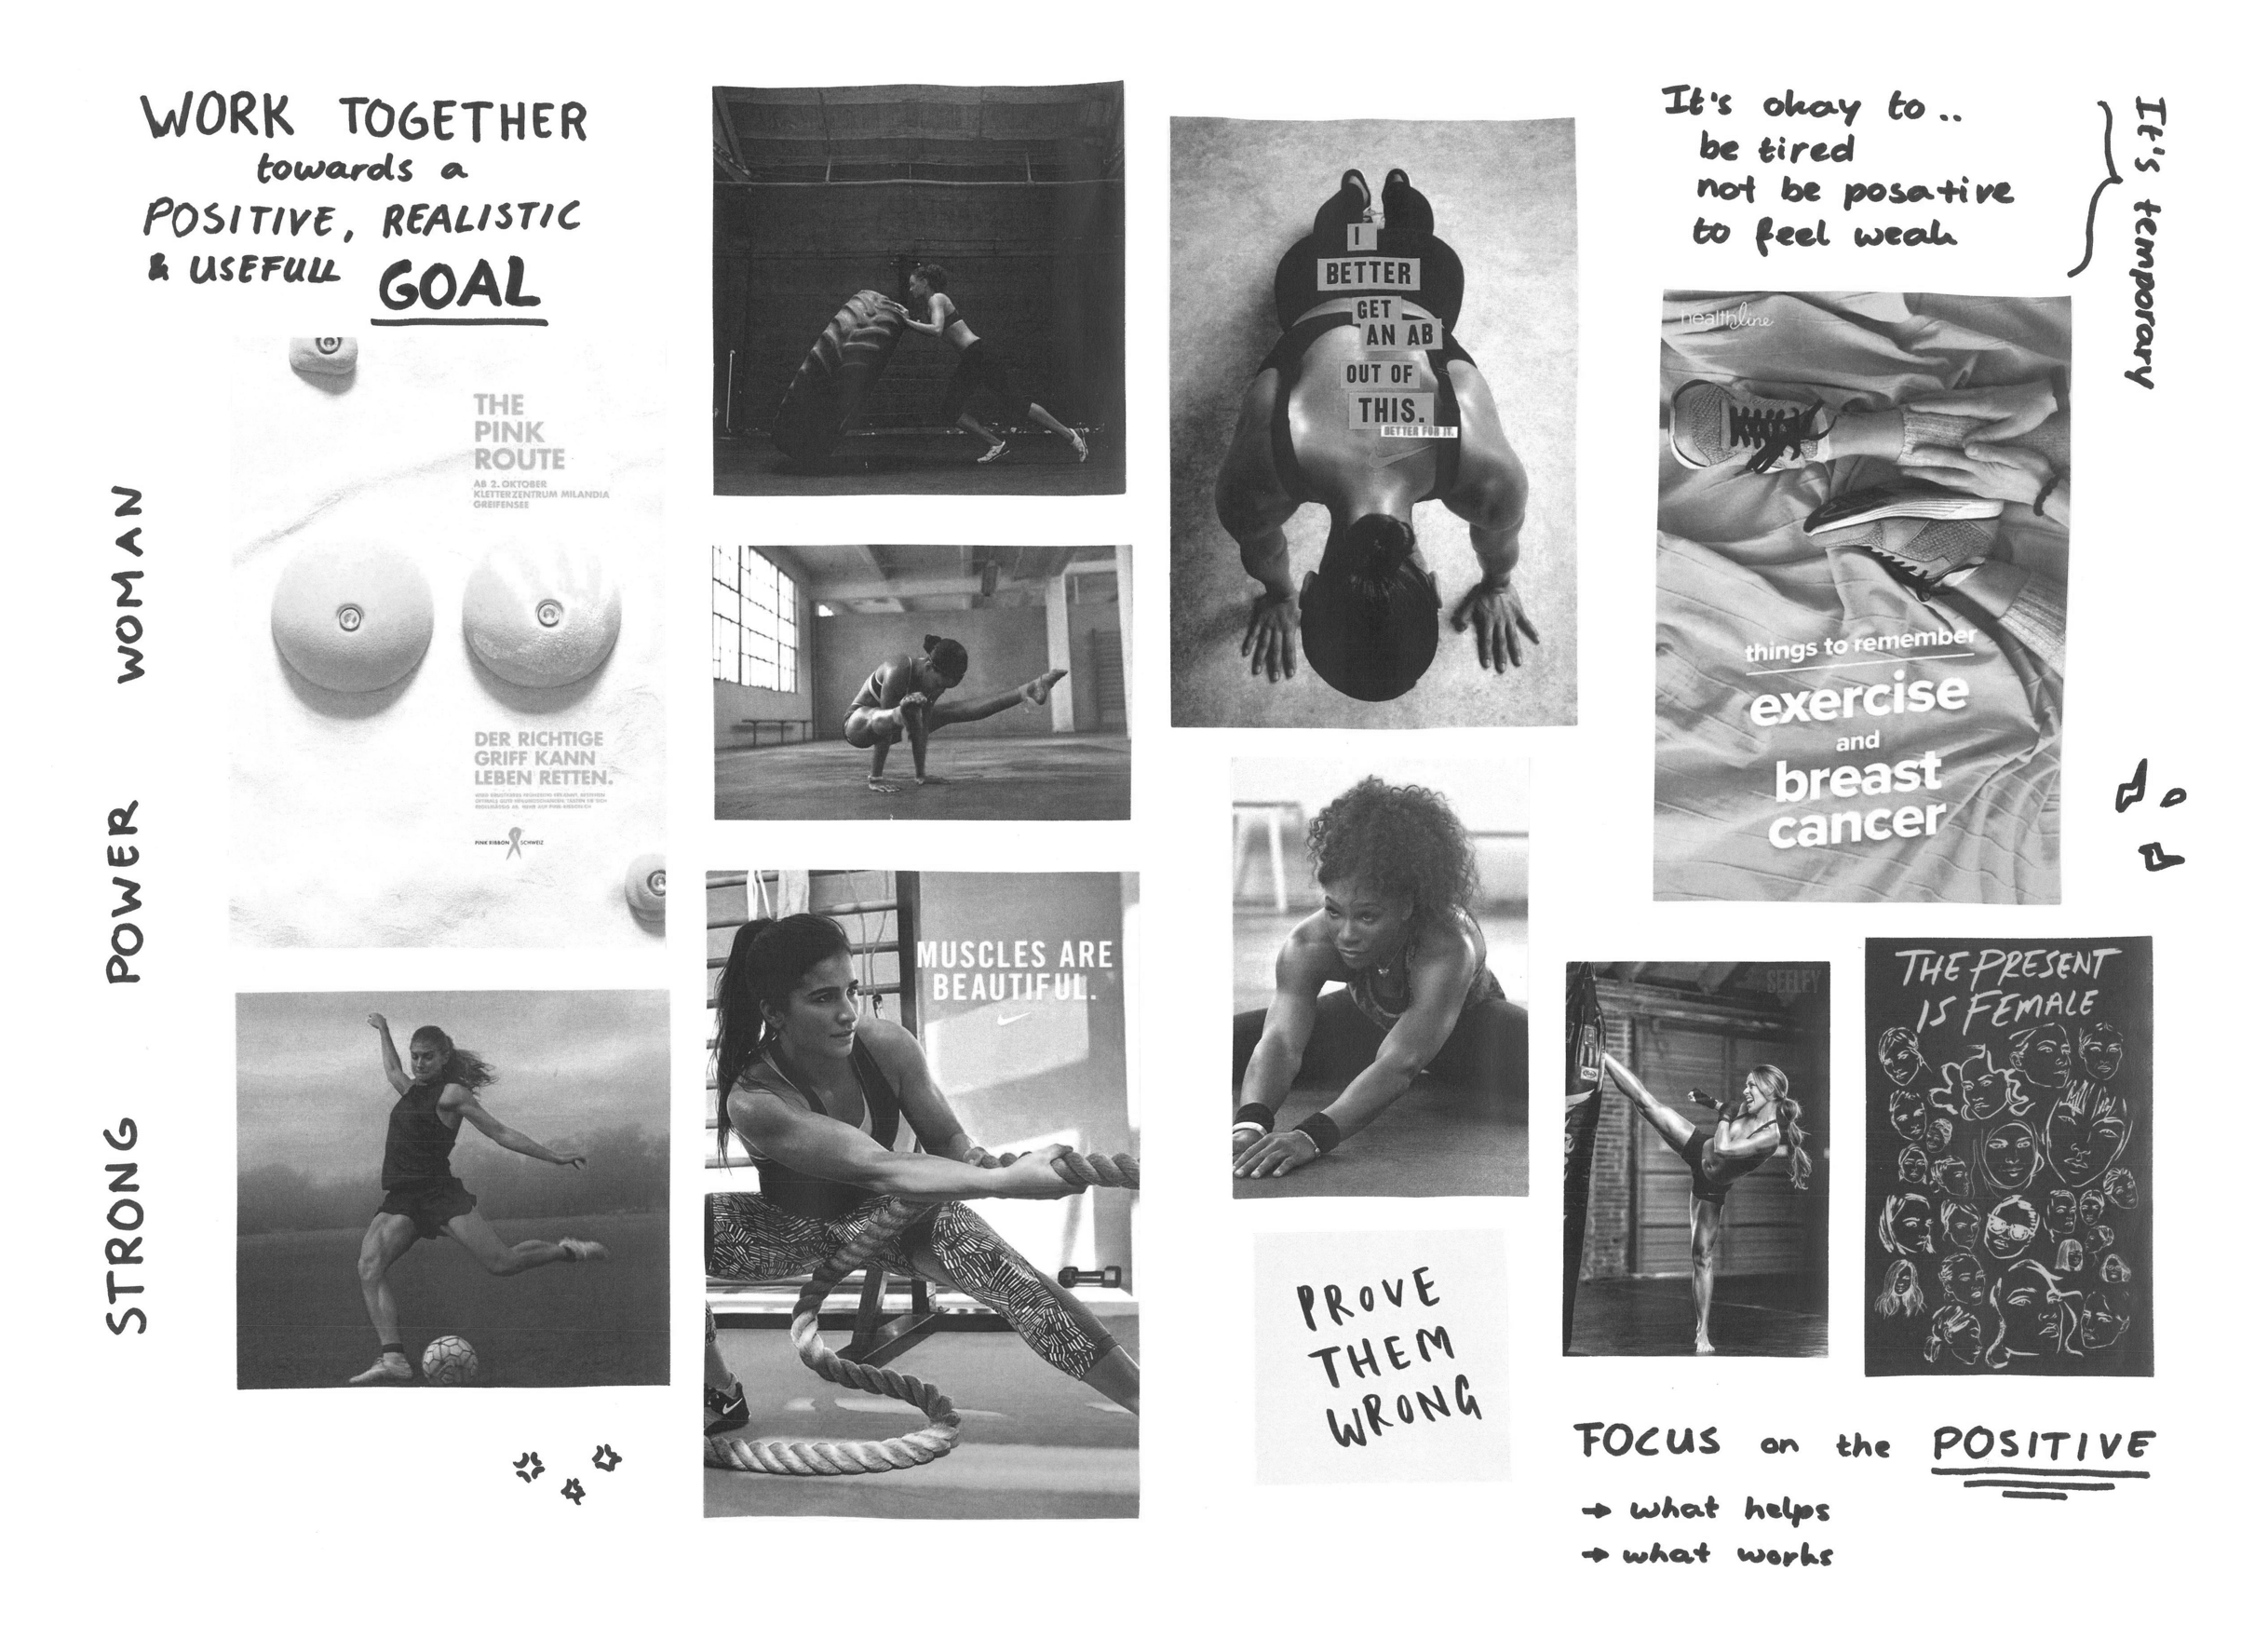 WORK TOGETHER
towards a
POSITIVE, REALISTIC
& USEFULL GOAL
WOMAN
POWER
STRONG
THE
PINK
ROUTE
AB 2. OKTOBER
KLETTERZENTRUM MILANDIA
GREIFENSEE
DER RICHTIGE
GRIFF KANN
LEBEN RETTEN.
PINK RIBBON SCHWEIZ
MUSCLES ARE
BEAUTIFUL.
I
BETTER
GET
AN AB
OUT OF
THIS.
BETTER FOR IT.
PROVE
THEM
WRONG
It's okay to..
be tired
not be posative
to feel weak
It's temporary
healthline
things to remember
exercise
and
breast
cancer
SEELEY
THE PRESENT
IS FEMALE
FOCUS on the POSITIVE
→ what helps
→ what works